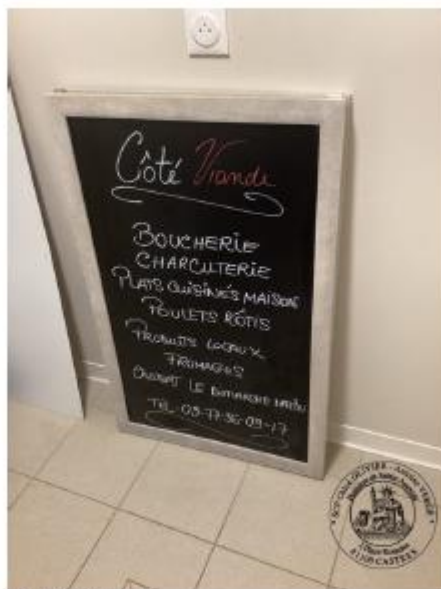 Côté Viande
BOUCHERIE
CHARCUTERIE
PLATS CUISINÉS MAISON
POULETS RÔTIS
PRODUITS LOCAUX
FROMAGES
OUVERT LE DIMANCHE MATIN
TEL. 09-77-36-09-17
OLIVIER
81100 CASTRES